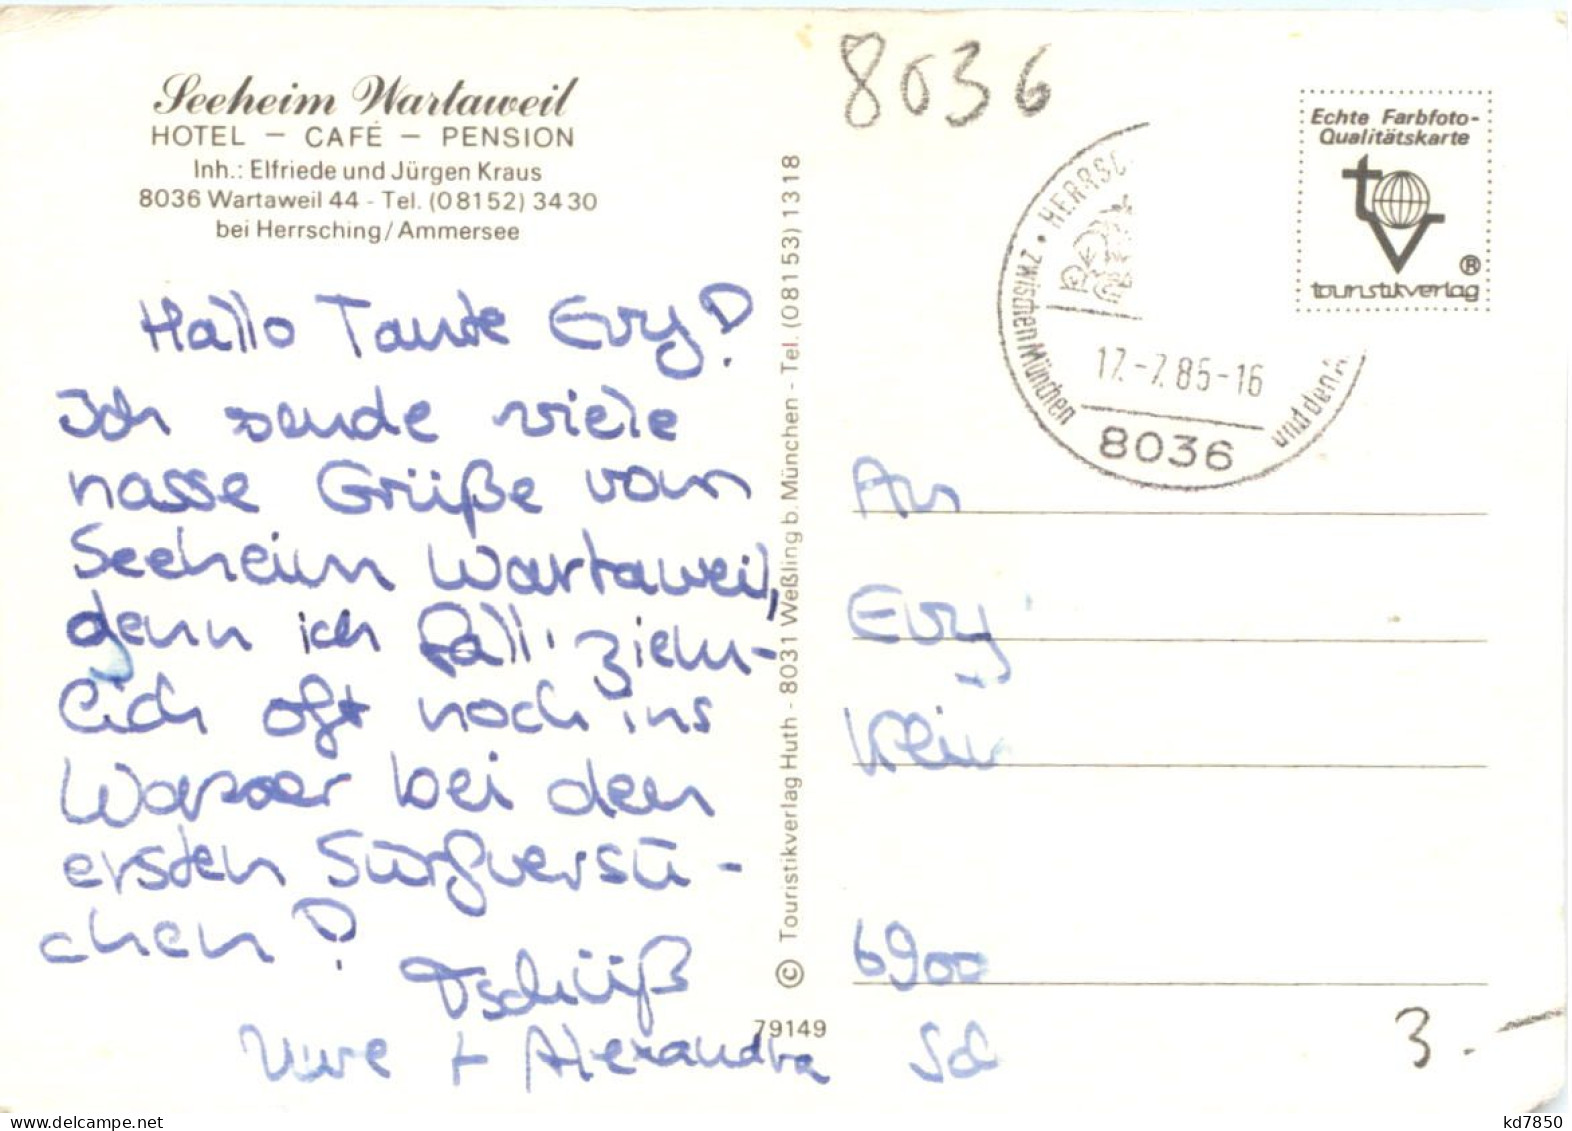 Seeheim Wartaweil
HOTEL – CAFÉ – PENSION
Inh.: Elfriede und Jürgen Kraus
8036 Wartaweil 44 - Tel. (08152) 3430
bei Herrsching/Ammersee
Hallo Tante Evy!
Ich sende viele
nasse Grüße vom
Seeheim Wartaweil,
denn ich fall' ziem-
lich oft noch ins
Wasser bei den
ersten Surfversu-
chen!
Tschüß
Uwe + Alexandra
© Touristikverlag Huth - 8031 Weßling b. München - Tel. (08153) 1318
79149
8036
HERRSC
zwischen München
und den
17.-7.85-16
8036
Echte Farbfoto-
Qualitätskarte
tv
®
touristikverlag
An
Evy
Klein
6900
Sch
3.-
kd7850